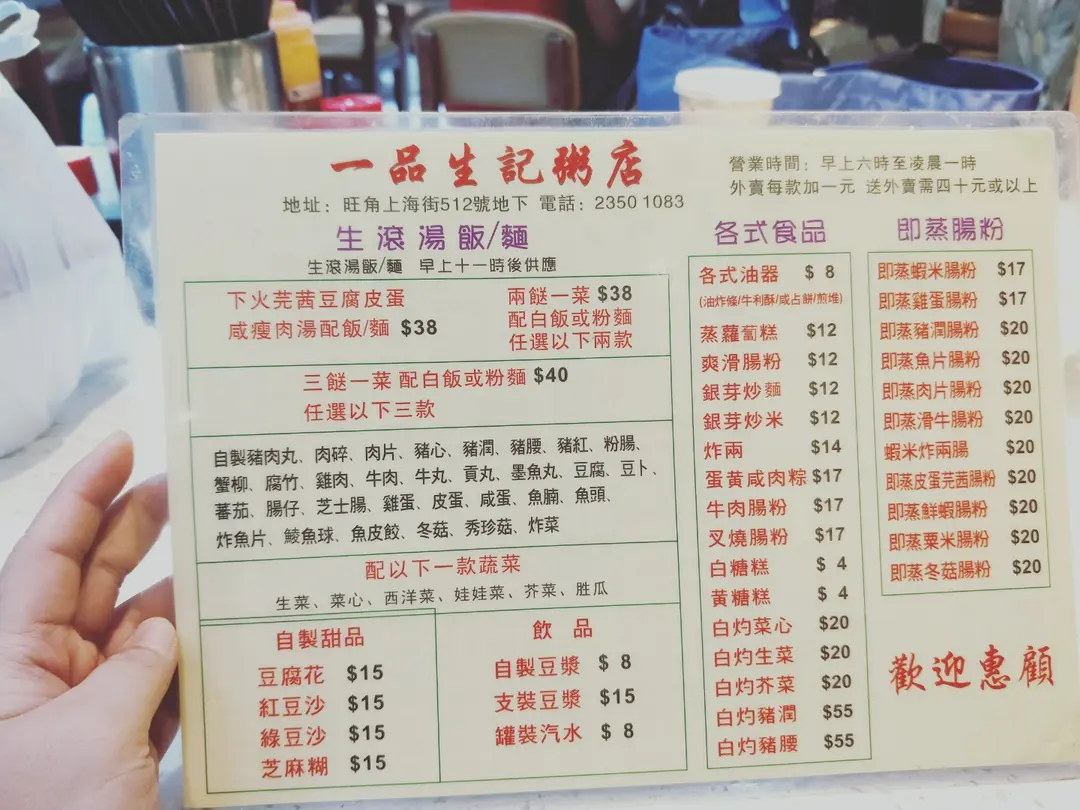 一品生記粥店
地址：旺角上海街512號地下 電話：2350 1083
營業時間：早上六時至凌晨一時
外賣每款加一元 送外賣需四十元或以上
生滾湯飯/麵
生滾湯飯/麵 早上十一時後供應
下火芫茜豆腐皮蛋
咸瘦肉湯配飯/麵 $38
兩餸一菜 $38
配白飯或粉麵
任選以下兩款
三餸一菜 配白飯或粉麵 $40
任選以下三款
自製豬肉丸、肉碎、肉片、豬心、豬潤、豬腰、豬紅、粉腸、
蟹柳、腐竹、雞肉、牛肉、牛丸、貢丸、墨魚丸、豆腐、豆卜、
蕃茄、腸仔、芝士腸、雞蛋、皮蛋、咸蛋、魚腩、魚頭、
炸魚片、鯪魚球、魚皮餃、冬菇、秀珍菇、炸菜
配以下一款蔬菜
生菜、菜心、西洋菜、娃娃菜、芥菜、胜瓜
自製甜品
豆腐花 $15
紅豆沙 $15
綠豆沙 $15
芝麻糊 $15
飲品
自製豆漿 $ 8
支裝豆漿 $15
罐裝汽水 $ 8
各式食品
各式油器 $ 8
(油炸條/牛利酥/咸占餅/煎堆)
蒸蘿蔔糕 $12
爽滑腸粉 $12
銀芽炒麵 $12
銀芽炒米 $12
炸兩 $14
蛋黃咸肉粽 $17
牛肉腸粉 $17
叉燒腸粉 $17
白糖糕 $ 4
黃糖糕 $ 4
白灼菜心 $20
白灼生菜 $20
白灼芥菜 $20
白灼豬潤 $55
白灼豬腰 $55
即蒸腸粉
即蒸蝦米腸粉 $17
即蒸雞蛋腸粉 $17
即蒸豬潤腸粉 $20
即蒸魚片腸粉 $20
即蒸肉片腸粉 $20
即蒸滑牛腸粉 $20
蝦米炸兩腸 $20
即蒸皮蛋芫茜腸粉 $20
即蒸鮮蝦腸粉 $20
即蒸粟米腸粉 $20
即蒸冬菇腸粉 $20
歡迎惠顧